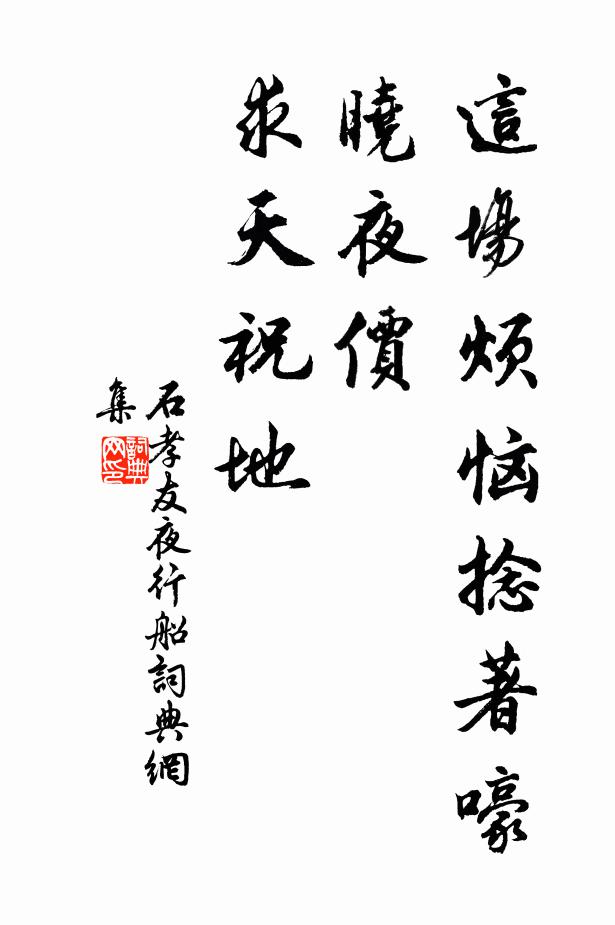 這場煩恼捻著嚎
曉夜價
求天祝地
石孝友夜行船詞典網
集
詞典
网印